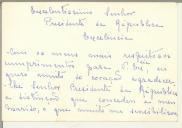 Excelentíssimo Senhor
Presidente da República
Excelência
Com os meus mais respeitosos
cumprimentos para V. Exª, eu
quero muito de coração agradecer
Senhor Presidente da República
a distinção que concedeu a meu
marido, e que muito me sensibilizou